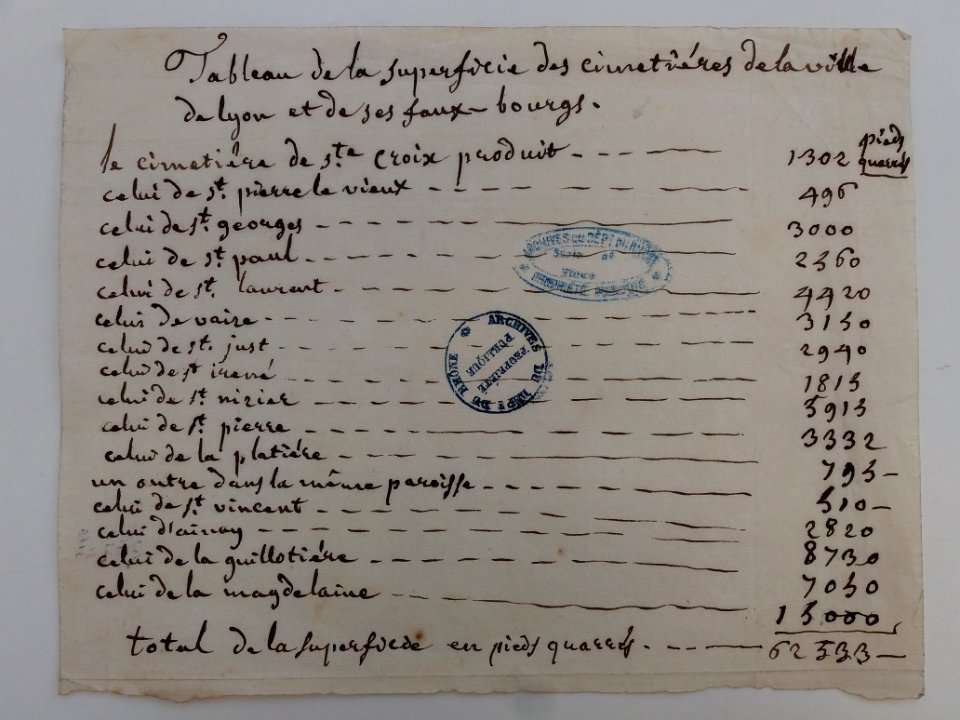 Tableau de la superficie des cimetiéres de la ville
de lyon et de ses faux-bourgs.
le cimetiére de Ste croix produit - - - 1302 pieds quarrés
celui de st. pierre le vieux - - - 496
celui de st. georges - - - 3000
celui de st. paul - - - 2360
celui de st. laurent - - - 4420
celui de vaise - - - 3150
celui de st. just - - - 2940
celui de st irené - - - 1815
celui de st. nizier - - - 5915
celui de st. pierre - - - 3332
celui de la platiére - - - 795 -
un autre dans la même paroisse - - - 510 -
celui de st. vincent - - - 2820
celui d'ainay - - - 8730
celui de la guillotiére - - - 7050
celui de la magdelaine - - - 15000
total de la superficie en pieds quarrés - - - 62535 -
ARCHIVES DU DÉPT DU RHÔNE
ARCHIVES DU DÉPT DU RHÔNE
PROPRIÉTÉ
PUBLIQUE